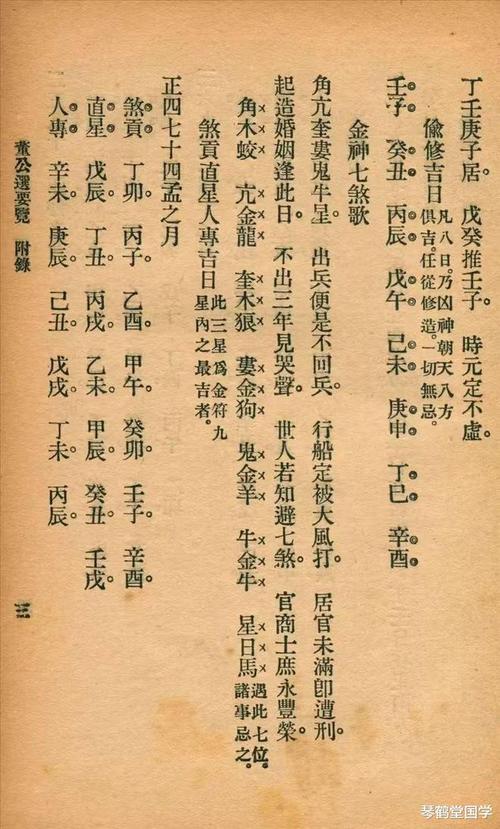 丁壬庚子居。 戊癸推壬子。 時元定不虛。
偷修吉日 凡八日。乃凶神朝天八方
俱吉。任從修造。一切無忌。
壬子 癸丑 丙辰 戊午 己未 庚申 丁巳 辛酉
金神七煞歌
角亢奎婁鬼牛星。 出兵便是不回兵。 行船定被大風打。 居官未滿卽遭刑。
起造婚姻逢此日。 不出三年見哭聲。 世人若知避七煞。 官商士庶永豐榮。
角木蛟 亢金龍 奎木狼 婁金狗 鬼金羊 牛金牛 星日馬 遇此七位。
諸事忌之。
煞貢直星人專吉日 此三星爲金符九
星內之最吉者。
正四七十四孟之月
煞貢 丁卯。 丙子。 乙酉。 甲午。 癸卯。 壬子。 辛酉。
直星 戊辰。 丁丑。 丙戌。 乙未。 甲辰。 癸丑。 壬戌
人專 辛未。 庚辰。 己丑。 戊戌。 丁未。 丙辰。
董公選要覽 附錄
琴鹤堂国学